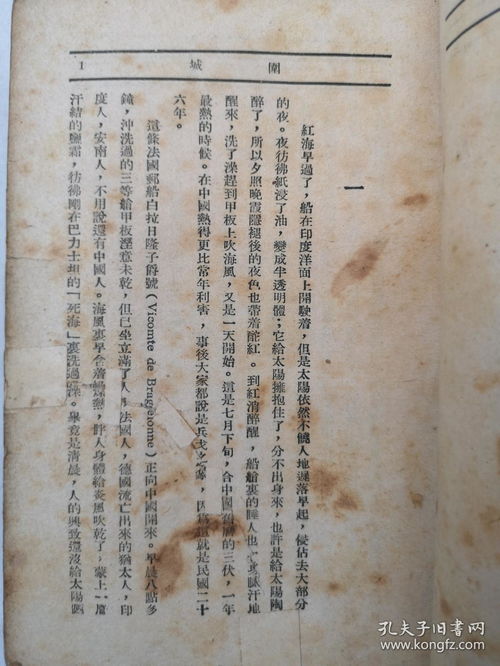 圍城 1
一
紅海早過了，船在印度洋面上開駛着，但是太陽依然不饒人地遲落早起，侵佔去大部分
的夜。夜彷彿紙浸了油，變成半透明體；它給太陽擁抱住了，分不出身來，也許是給太陽陶
醉了，所以夕照晚霞隱褪後的夜色也帶着酡紅。到紅消醉醒，船艙裏的睡人也一身膩汗地
醒來，洗了澡趕到甲板上吹海風，又是一天開始。這是七月下旬，合中國舊曆的三伏，一年
最熱的時候。在中國熱得更比常年利害，事後大家都說是兵戈之象，因爲這就是民國二十
六年。
這條法國郵船白拉日隆子爵號（Vicomte de Bragelonne）正向中國開來。早晨八點多
鐘，沖洗過的三等艙甲板溼意未乾，但已坐立滿了人，法國人，德國流亡出來的猶太人，印
度人，安南人，不用說還有中國人。海風裏早含着燥熱，胖人身體給炎風吹乾了，蒙上一層
汗結的鹽霜，彷彿剛在巴力士坦的「死海」裏洗過澡。畢竟是清晨，人的興致還沒給太陽晒
孔夫子旧书网
www.kongfz.com